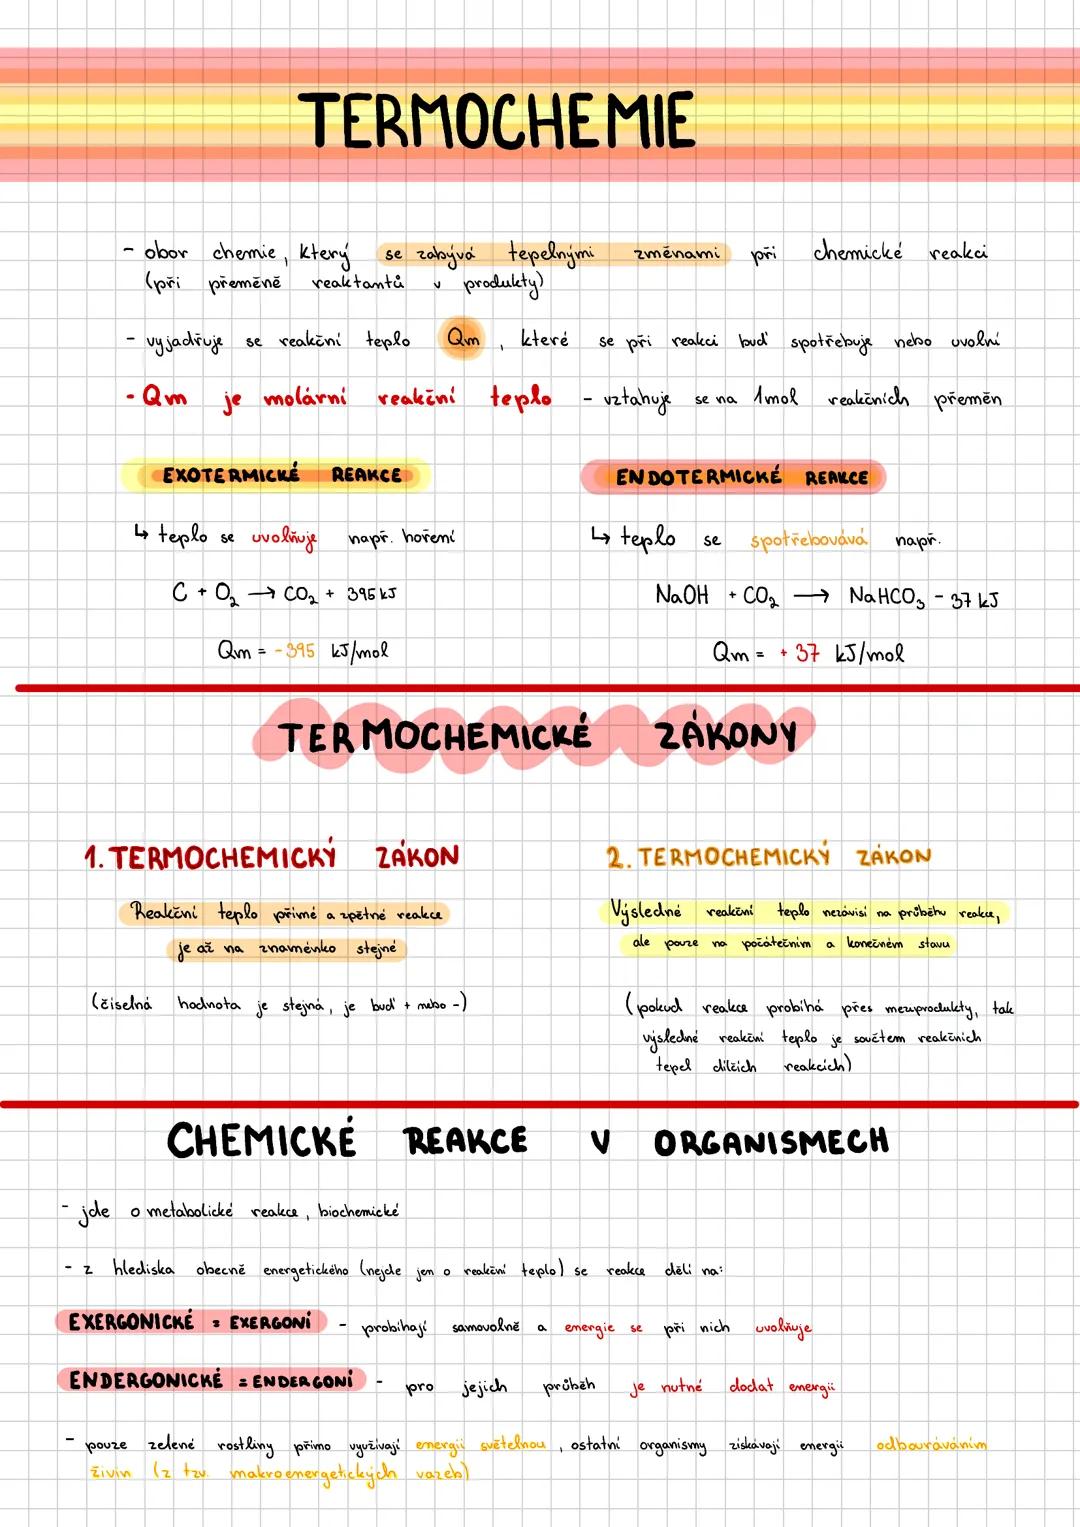 TERMOCHEMIE
- obor chemie, který se zabývá tepelnými změnami při chemické reakci
(při přeměně reaktantů v produkty)
- vyjadřuje se reakční teplo Qm, které se při reakci buď spotřebuje nebo uvolní
- Qm je molární reakční teplo - vztahuje se na 1mol reakčních přeměn
EXOTERMICKÉ REAKCE
↳ teplo se uvolňuje např. hoření
C + O₂ → CO₂ + 395 kJ
Qm = -395 kJ/mol
ENDOTERMICKÉ REAKCE
↳ teplo se spotřebovává např.
NaOH + CO₂ → NaHCO₃ - 37 kJ
Qm = + 37 kJ/mol
TERMOCHEMICKÉ ZÁKONY
1. TERMOCHEMICKÝ ZÁKON
Reakční teplo přímé a zpětné reakce
je až na znaménko stejné
(číselná hodnota je stejná, je buď + nebo -)
2. TERMOCHEMICKÝ ZÁKON
Výsledné reakční teplo nezávisí na průběhu reakce,
ale pouze na počátečním a konečném stavu
(pokud reakce probíhá přes meziprodukty, tak
výsledné reakční teplo je součtem reakčních
tepel dílčích reakcích)
CHEMICKÉ REAKCE V ORGANISMECH
- jde o metabolické reakce, biochemické
- z hlediska obecně energetického (nejde jen o reakční teplo) se reakce dělí na:
EXERGONICKÉ = EXERGONÍ - probíhají samovolně a energie se při nich uvolňuje
ENDERGONICKÉ = ENDERGONÍ - pro jejich průběh je nutné dodat energii
- pouze zelené rostliny přímo využívají energii světelnou, ostatní organismy získávají energii odbouráváním
živin (z tzv. makroenergetických vazeb)